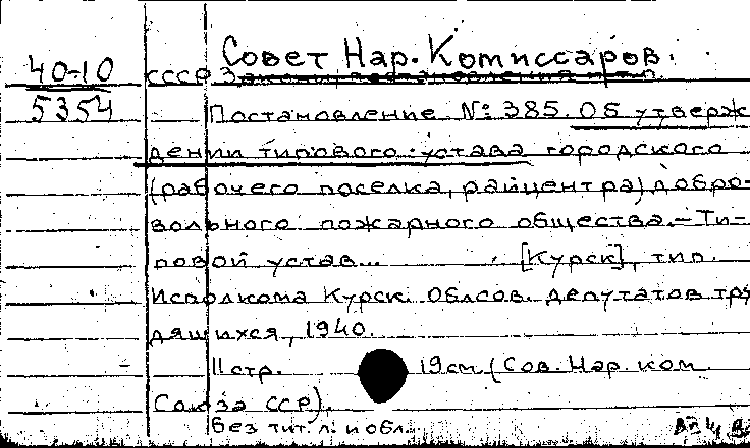 Совет Нар. Комиссаров.
40-10 СССР Законы, постановления и т.п.
5354 Постановление № 385. Об утверж-
дении типового устава городского
(рабочего поселка, райцентра) добро-
вольного пожарного общества.- Ти-
повой устав... [Курск], тип.
Исполкома Курск. Облсов. депутатов тру
дящихся, 1940.
11 стр. 19 см (Сов. Нар. ком.
Союза ССР).
Без тит. л. и обл.